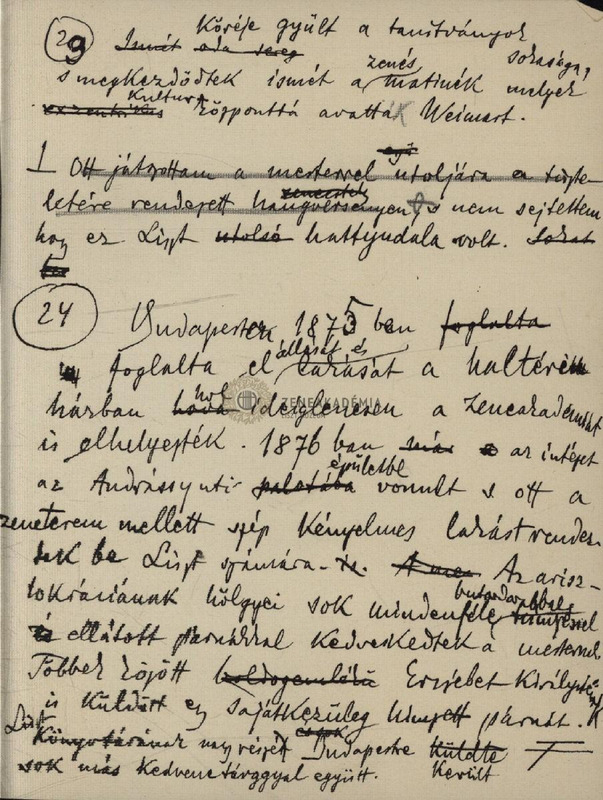 23 Köréje gyült a tanítványok
Ismét ada sereg sokasága,
s megkezdődtek ismét a zenés matinék melyek
kultur központtá avatták Weimart.
Ott játszottam a mesterrel utoljára a tiszte-
letére rendezett hangversenyen s nem sejtettem
hogy ez Liszt utolsó hattyudala volt. Sokat
24 Budapesten 1875 ben foglalta
foglalta el állását és lakását a haltéri
házban hol ideiglenesen a zeneakadémiát
ZENEAKADÉMIA
is elhelyezték. 1876 ban már az intézet
az Andrássyuti palotába épületbe vonult s ott a
zeneterem mellett szép kényelmes lakást rendez-
tek be Liszt számára. Az arisz-
tokráciának hölgyei sok mindenféle
ellátott párnákkal kedveskedtek a mesternek
Többek között boldogemlékű Erzsébet Királyné
is küldött egy sajátkezüleg hímzett párnát.
Liszt Könyvtárának nagyrészét Budapestre küldte
sok más kedvenc tárggyal együtt. került